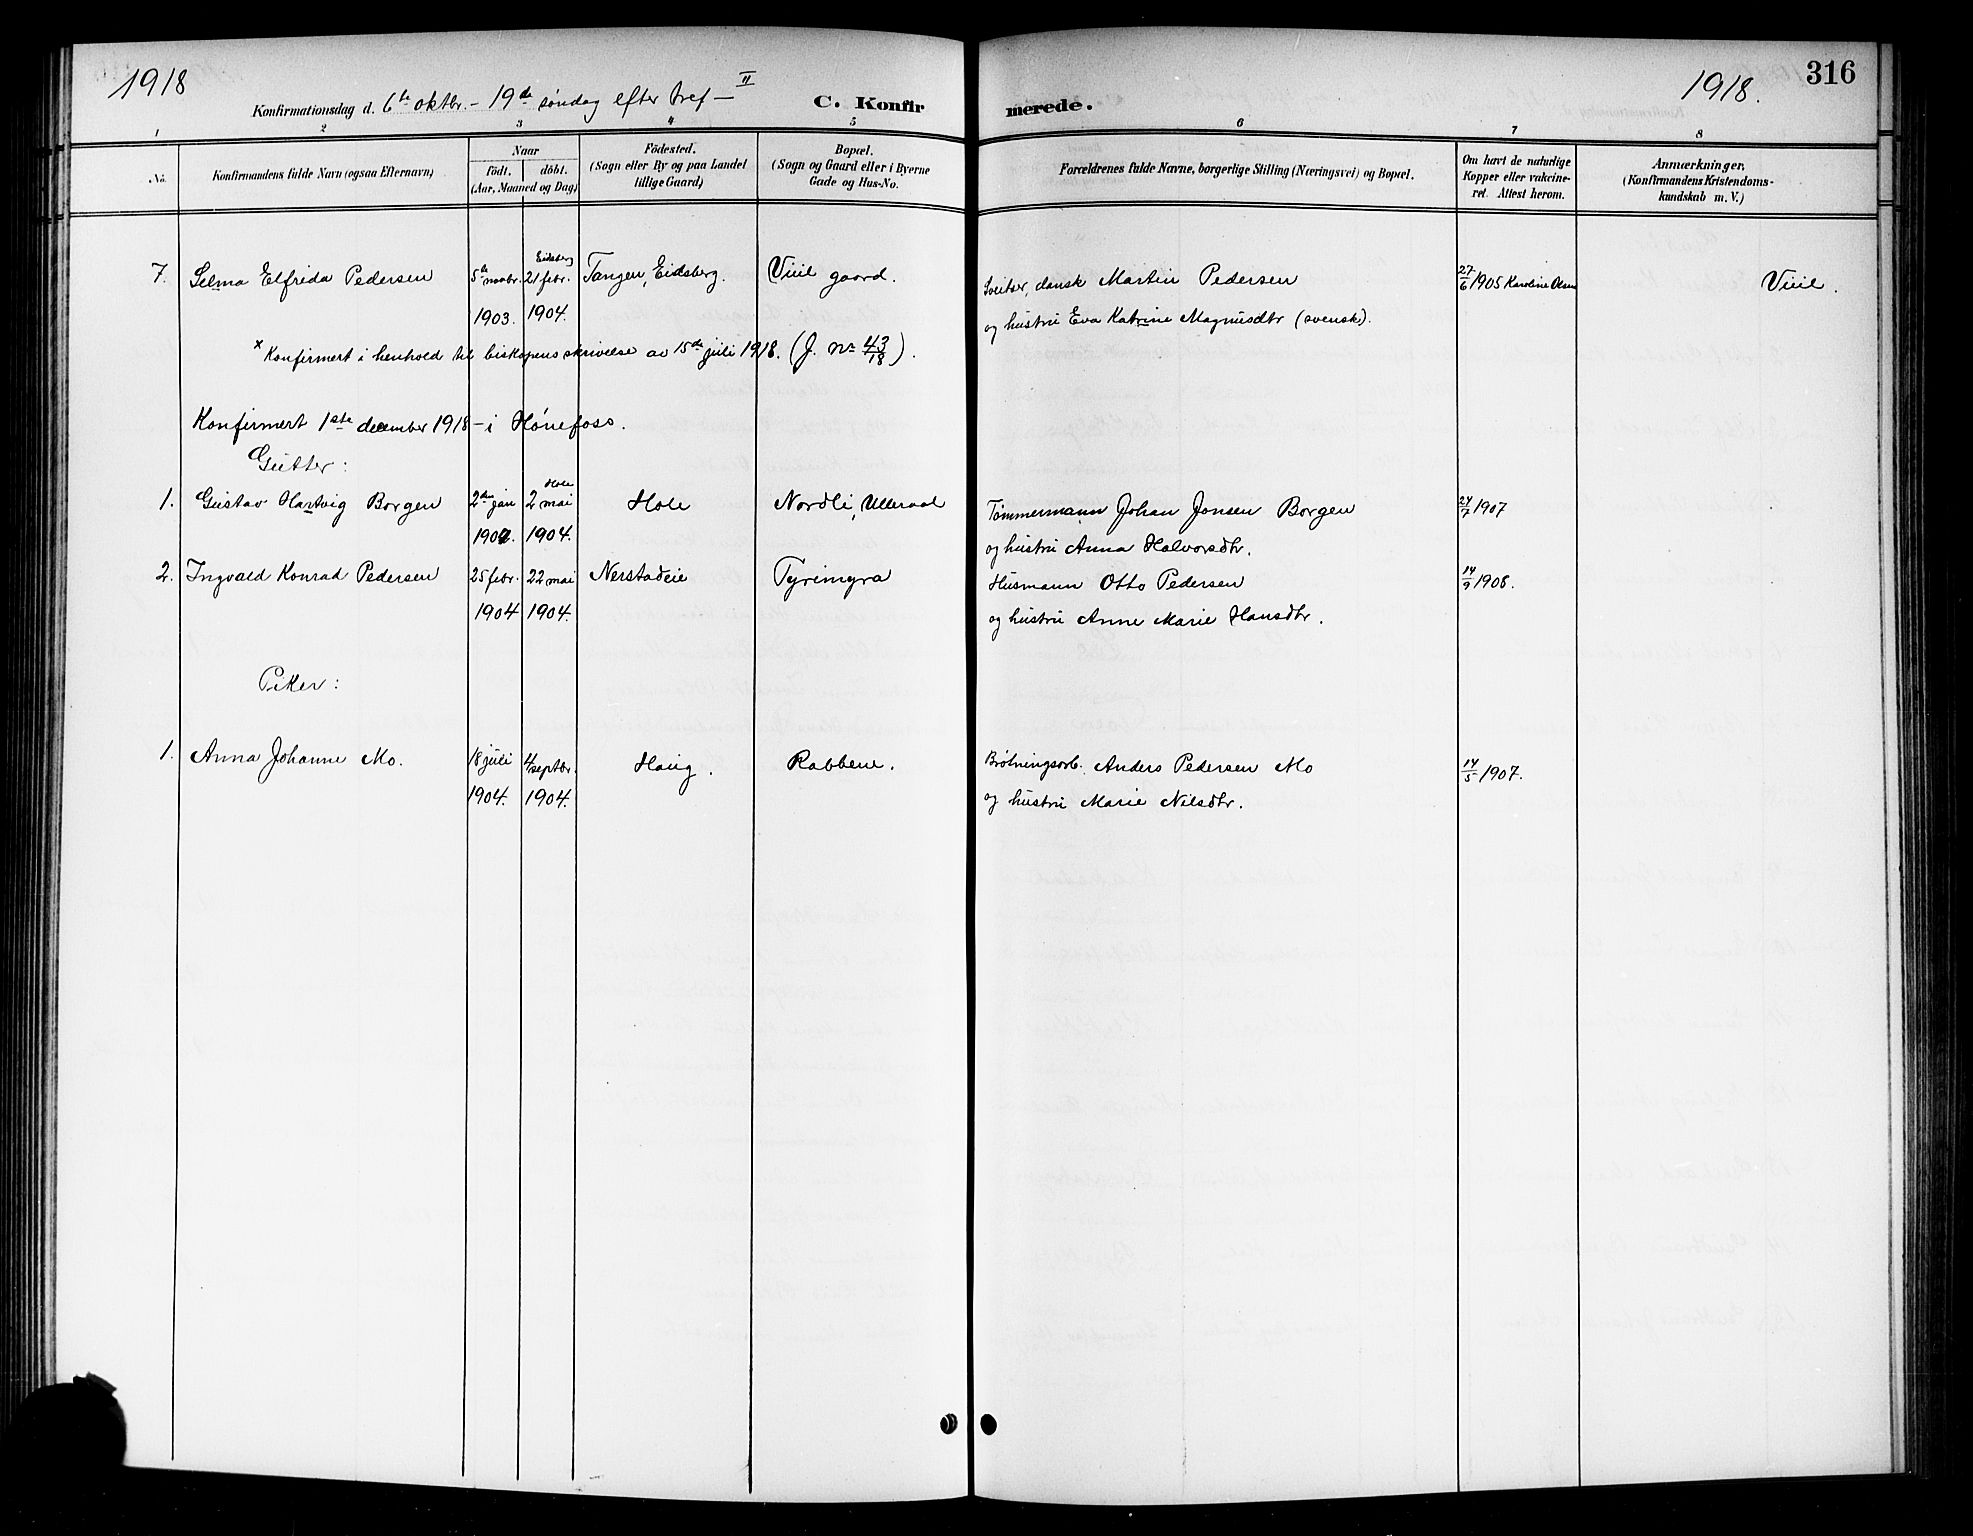 1918
Konfirmationsdag d. 6te oktbr. - 19de søndag efter tref - II
C. Konfirmerede.
1918.
316
1 2 3 4 5 6 7 8
No. Konfirmandens fulde Navn (ogsaa Efternavn)
Naar født. døbt. (Aar, Maaned og Dag)
Födested. (Sogn eller By og paa Landet tillige Gaard)
Bopæl. (Sogn og Gaard eller i Byerne Gade og Hus-No.
Forældrenes fulde Navne, borgerlige Stilling (Næringsvei) og Bopæl.
Om havt de naturlige Kopper eller vakcineret. Attest herom.
Anmærkninger, (Konfirmandens Kristendomskundskab m. V.)
7. Selma Elfrida Pedersen 5te novbr. 1903. Eidsberg 21 febr. 1904. Tangen, Eidsberg. Viul gaard. Sveitser, dansk Martin Pedersen 27/6 1905 Karoline Olsen Viul.
og hustru Eva Katrine Magnusdtr (svensk).
x Konfirmert i henhold til biskopens skrivelse av 15de juli 1918. (J. nr 43/18).
Konfirmert 1ste december 1918 - i Hønefoss.
Gutter:
1. Gustav Hartvig Borgen 2den jan 1904. Hole 2 mai 1904. Hole Nordli, Ulleraal Tømmermann Johan Jonsen Borgen 24/7 1907
og hustru Anna Halvorsdtr.
2. Ingvald Konrad Pedersen 25 febr. 1904 22 mai 1904. Nerstadeie Tyrimyra Husmann Otto Pedersen 14/9 1908.
og hustru Anne Marie Hansdtr.
Piker:
1. Anna Johanne Mo. 18 juli 1904. 4 septbr. 1904. Haug. Rabbene. Brøtningsarb. Anders Pedersen Mo 14/5 1907.
og hustru Marie Nilsdtr.